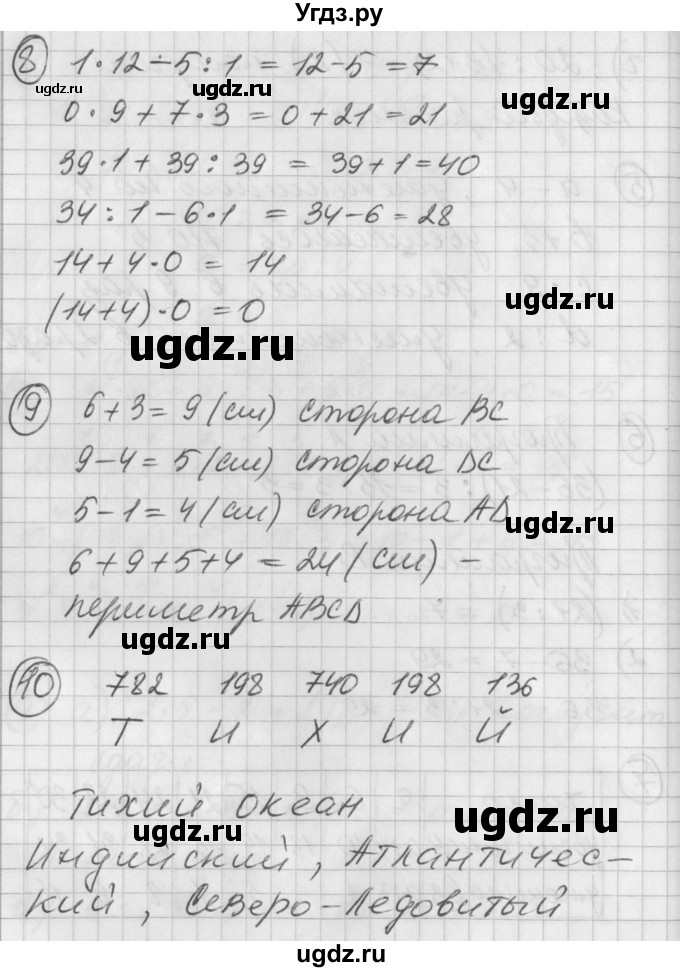 Угдз.ру
8 1·12-5:1 = 12-5 = 7
0·9+7·3 = 0+21 = 21
39·1+39:39 = 39+1=40
34:1-6·1 = 34-6=28
14+4·0 = 14
(14+4)·0 = 0
9 6+3=9(см) сторона BC
9-4=5(см) сторона DC
5-1=4(см) сторона AD
6+9+5+4=24(см) –
периметр ABCD
10 782 198 740 198 136
Т И Х И Й
Тихий океан
Индийский, Атлантичес-
кий, Северо-Ледовитый
ugdz.ru
ugdz.ru
ugdz.ru
ugdz.ru
ugdz.ru
ugdz.ru
ugdz.ru
ugdz.ru
ugdz.ru
ugdz.ru
ugdz.ru
ugdz.ru